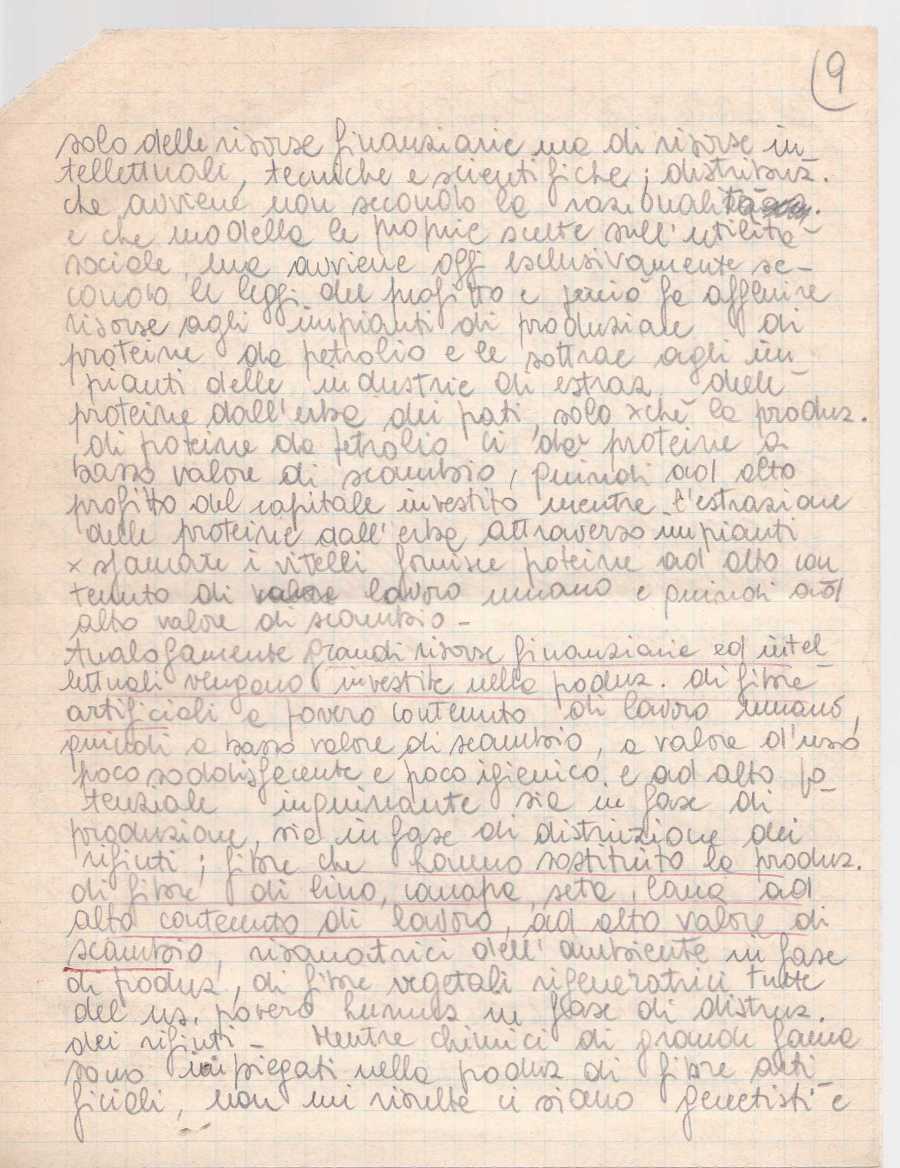 9
solo delle risorse finanziarie ma di risorse in
tellettuali, tecniche e scientifiche; distribuz.
che avviene non secondo la razionalità
e che modella le proprie scelte sull'utilità
sociale, ma avviene oggi esclusivamente se-
condo le leggi del profitto e perciò fa affluire
risorse agli impianti di produzione di
proteine da petrolio e le sottrae agli im
pianti delle industrie di estraz. delle
proteine dall'erba dei prati, solo xchè la produz.
di proteine da petrolio ci dà proteine a
basso valore di scambio, quindi ad alto
profitto del capitale investito mentre l'estrazione
delle proteine dall'erba attraverso impianti
x sfamare i vitelli fornisce proteine ad alto con
tenuto di lavoro umano e quindi ad
alto valore di scambio -
Analogamente grandi risorse finanziarie ed intel
lettuali vengono investite nella produz. di fibre
artificiali a povero contenuto di lavoro umano,
quindi a basso valore di scambio, a valore d'uso
poco soddisfacente e poco igienico e ad alto po
tenziale inquinante sia in fase di
produzione, sia in fase di distruzione dei
rifiuti; fibre che hanno sostituito la produz.
di fibre di lino, canapa, seta, lana ad
alto contenuto di lavoro, ad alto valore di
scambio, risanatrici dell'ambiente in fase
di produz, di fibre vegetali rigeneratrici tutte
del ns. povero humus in fase di distruz.
dei rifiuti - Mentre chimici di grande fama
sono impiegati nella produz di fibre arti
ficiali, non mi risulta ci siano genetisti e